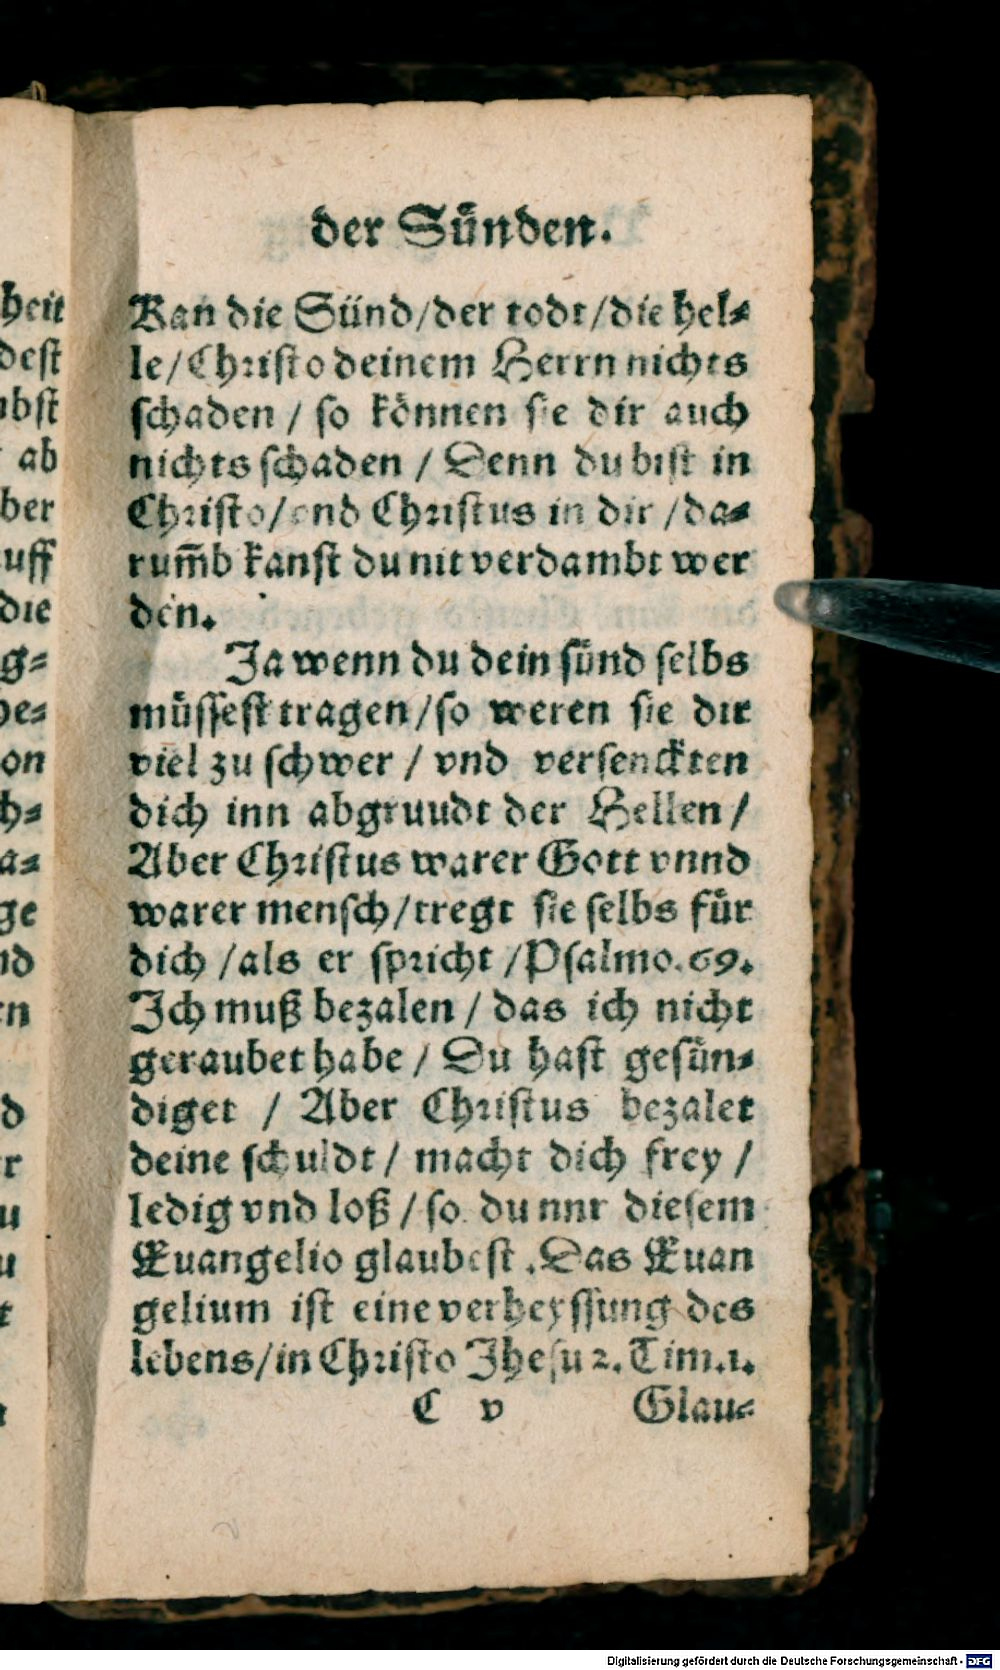 der Sünden.
Kan die Sünd/der todt/die hel-
le/Christo deinem Herrn nichts
schaden / so können sie dir auch
nichts schaden / Denn du bist in
Christo/vnd Christus in dir /da-
rum̃b kanst du nit verdambt wer
den.
Ja wenn du dein sünd selbs
müssest tragen/so weren sie dir
viel zu schwer / vnd versenckten
dich inn abgruudt der Hellen /
Aber Christus warer Gott vnnd
warer mensch/tregt sie selbs für
dich /als er spricht /Psalmo.69.
Ich muß bezalen / das ich nicht
geraubet habe / Du hast gesün-
diget / Aber Christus bezalet
deine schuldt / macht dich frey /
ledig vnd loß / so du nnr diesem
Euangelio glaubest .Das Euan
gelium ist eine verheyssung des
lebens/in Christo Jhesu 2.Tim.1.
C v Glau-
heit
dest
ab
ber
uff
die
g-
on
h-
a-
ge
Digitalisierung gefördert durch die Deutsche Forschungsgemeinschaft - DFG